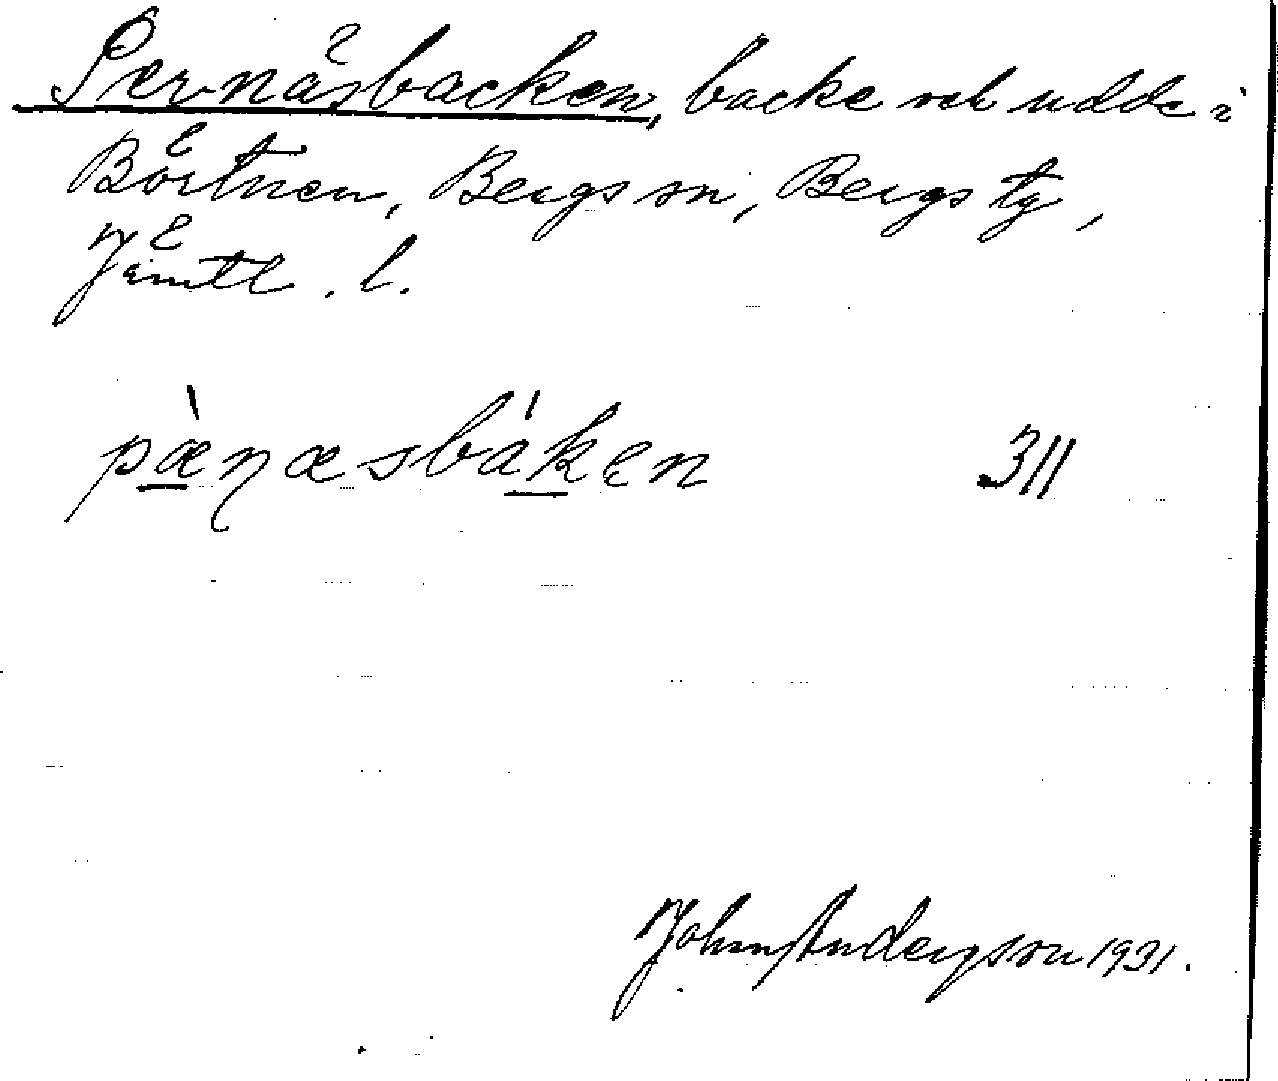 Pernäsbacken, backe och udde i
Börtnen, Bergs sn, Bergs tg,
Jämtl. l.
pæ̀ṇæsbáken 311
John Andersson 1931.